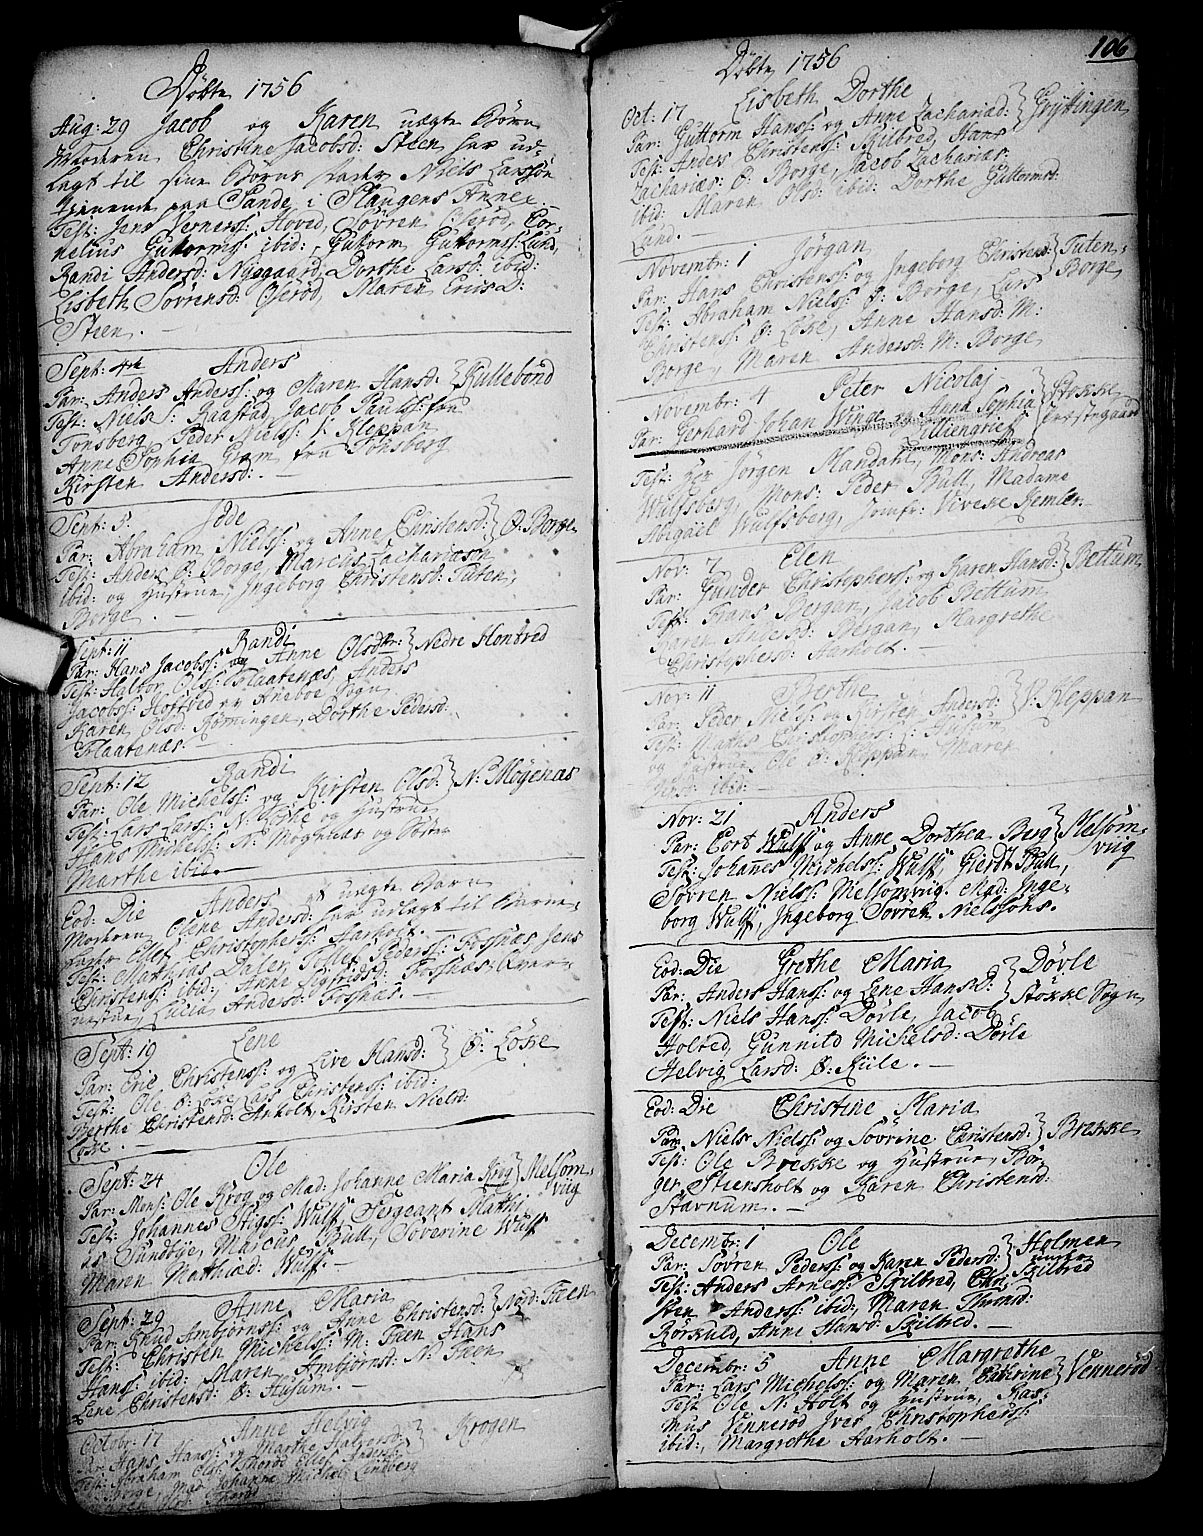 Döbte 1756
Aug: 29 Jacob og Karen uægte Börn
Moderen Christine Jacobsd: Steen har ud-
lagt til sine Börns fader Niels Larssön
tienende paa Sande i Slaugens Annex.
Test: Jens Verners: Hoved, Sövren Oseröd, Cor-
nelius Guttormss: ibid:, Guttorm Guttormss: Lund,
Randi Andersd: Nygaard, Dorthe Larsd: ibid:
Lisbeth Sövrensd: Oseröd, Maren Erics D:
Steen. —
Sept: 4de Anders
Par: Anders Anderss: og Maren Hansd: } Kullebund
Test: Niels S: Raastad, Jacob Paulss: fra
Tonsberg Peder Niels: S: Kleppan
Anne Sophia fra Tonsberg
Kirsten Andersd: —
Sept: 5 Idde
Par: Abraham Nielss: og Anne Christensd: } Ö: Borge
Test: Anders Ö: Borge, Marcus Zachariæsön
ibid: og Hustrue, Ingeborg Christensd: Tuten-
Borge. —
Sept: 11 Randi
Par: Hans Jacobss: og Anne Olsdtr: } Nedre Hontved
Test: Haltor Olss: Flaatenæs, Anders
Jacobss: Hortved Aneboe Sogn
Karen Olsd: Rörmingen, Dorthe Pedersd:
Flaatenæs. —
Sept: 12 Randi
Par: Ole Michelss: og Kirsten Olsd: } N: Mogenæs
Test: Lars Larss: N: Löske og Hustrue
Hans Michels: N: Mogenæs og Söster
Marthe ibid. —
Eod: Die Anders et uægte Barn
Moderen Olene Andersd: har udlagt til Barne-
fader Ellef Christophers: Aarholt. —
Test: Mathias Daler, Tellef Pederss: Fossnæs, Jens
Christenss: ibid:, Anne Sigfrids: Fossnæs:
Lucia Andersd: Fossnæs. —
Sept: 19 Lene
Par: Eric Christenss: og Live Hansd: } Ö: Löske
Test: Ole Ö: Löske Lars Christenss: ibid:
Berthe Christensd: Arholt, Kirsten Nielsd:
Löske. —
Sept: 24 Ole
Par: Mons: Ole Krog og Mad: Johanne Maria Krog } Melsom-
vig
Test: Johannes Stigss: Wulff, Sergeant Mathi-
as Sundbye, Marcus Bull, Söverine Wulff
Maren Mathiæd: Wulff. —
Sept: 29 Anne Maria
Par: Knud Ambjörnss: og Anne Christensd: } Nord: Feen
Test: Christen Michelss: M: Feen Hans
Hanss: ibid: Maren Ambjörnsd: N: Feen
Lene Christensd: Ö: Husum. —
Octobr: 17 Anne Helvig
Par: Hans Hanss: og Marthe Halvorsd: } Krogen
Test: Abraham Olss: Thoröd Ellef
Borge, Mad Johanne Michel Lindberg
Maren Olsd: Thoröd
106
Döbte 1756
Oct: 17 Lisbeth Dorthe
Par: Guttorm Hanss: og Anne Zachariæd: } Gryttingen
Test: Anders Christenss: Skilbred, Hans
Zachariæs: Ö: Borge, Jacob Zachariæs:
ibid: Maren Olsd: ibid: Dorthe Guttormsd:
Lund. —
Novembr: 1 Jörgan
Par: Hans Christenss: og Ingeborg Christensd: } Tuten-
Borge
Test: Abraham Nielss: Ö: Borge, Lars
Christenss: Ö: Löske, Anne Hansd: M:
Borge, Maren Andersd: M: Borge
Novembr: 4 Peter Nicolaj
Par: Gerhard Johan Winde og Anna Sophia } Stokke
Lilliengrief Præstegaard
Test: Her Jörgen Mandahl, Mons: Andreas
Wulfsberg, Mons: Peder Bull, Madame
Abigail Wulfsberg, Jomfr: Viveke Kemler.
Nov: 7 Elen
Par: Gunder Christopherss: og Karen Hansd: } Bettum
Test: Frans Bergan, Jacob Bettum,
Karen Andersd: Bergan, Margrethe
Christophersd: Aarholt. —
Nov: 11 Berthe
Par: Peder Nielss: og Kirsten Andersd: } S: Kleppan
Test: Maths Christophers: S: Husum
og Hustrue, Ole Ö: Kleppan, Maren
ibid: —
Nov: 21 Anders
Par: Cort Wulff og Anne Dorthea Berg } Melsom-
vig
Test: Johannes Michelss: Wulff, Gierdt Bull,
Sövren Nielss: Melsomvig. Mad: Inge-
borg Wulff, Ingeborg Sövren Nielssöns.
Eod: Die Grethe Maria
Par: Anders Hanss: og Lene Hansd: } Dövle
Stokke Sogn
Test: Niels Hanss: Dövle, Jacob
Holted, Gunnild Michelsd: Dövle
Helvig Larsd: Ö: Kiile. —
Eod: Die Christine Maria
Par: Niels Nielss: og Sövrine Christensd: } Brekke
Test: Ole Brekke og Hustrue, Bör-
ger Steensholt og Karen Christensd:
Stavnum. —
Decembr: 1 Ole
Par: Sövren Pederss: og Karen Pedersd: } Holmen
under
Skilbred
Test: Anders Arness: Skilbred, Chri-
sten Anderss: ibid:, Maren Thronsd:
Rörkuld, Anne Hansd: Skilbred. —
Decembr: 5 Anne Margrethe
Par: Lars Michelss: og Maren Cathrine } Venneröd
Test: Ole N: Holt og Hustrue, Ras-
mus Venneröd Iver Christopherss:
ibid:, Margrethe Aarholt. —